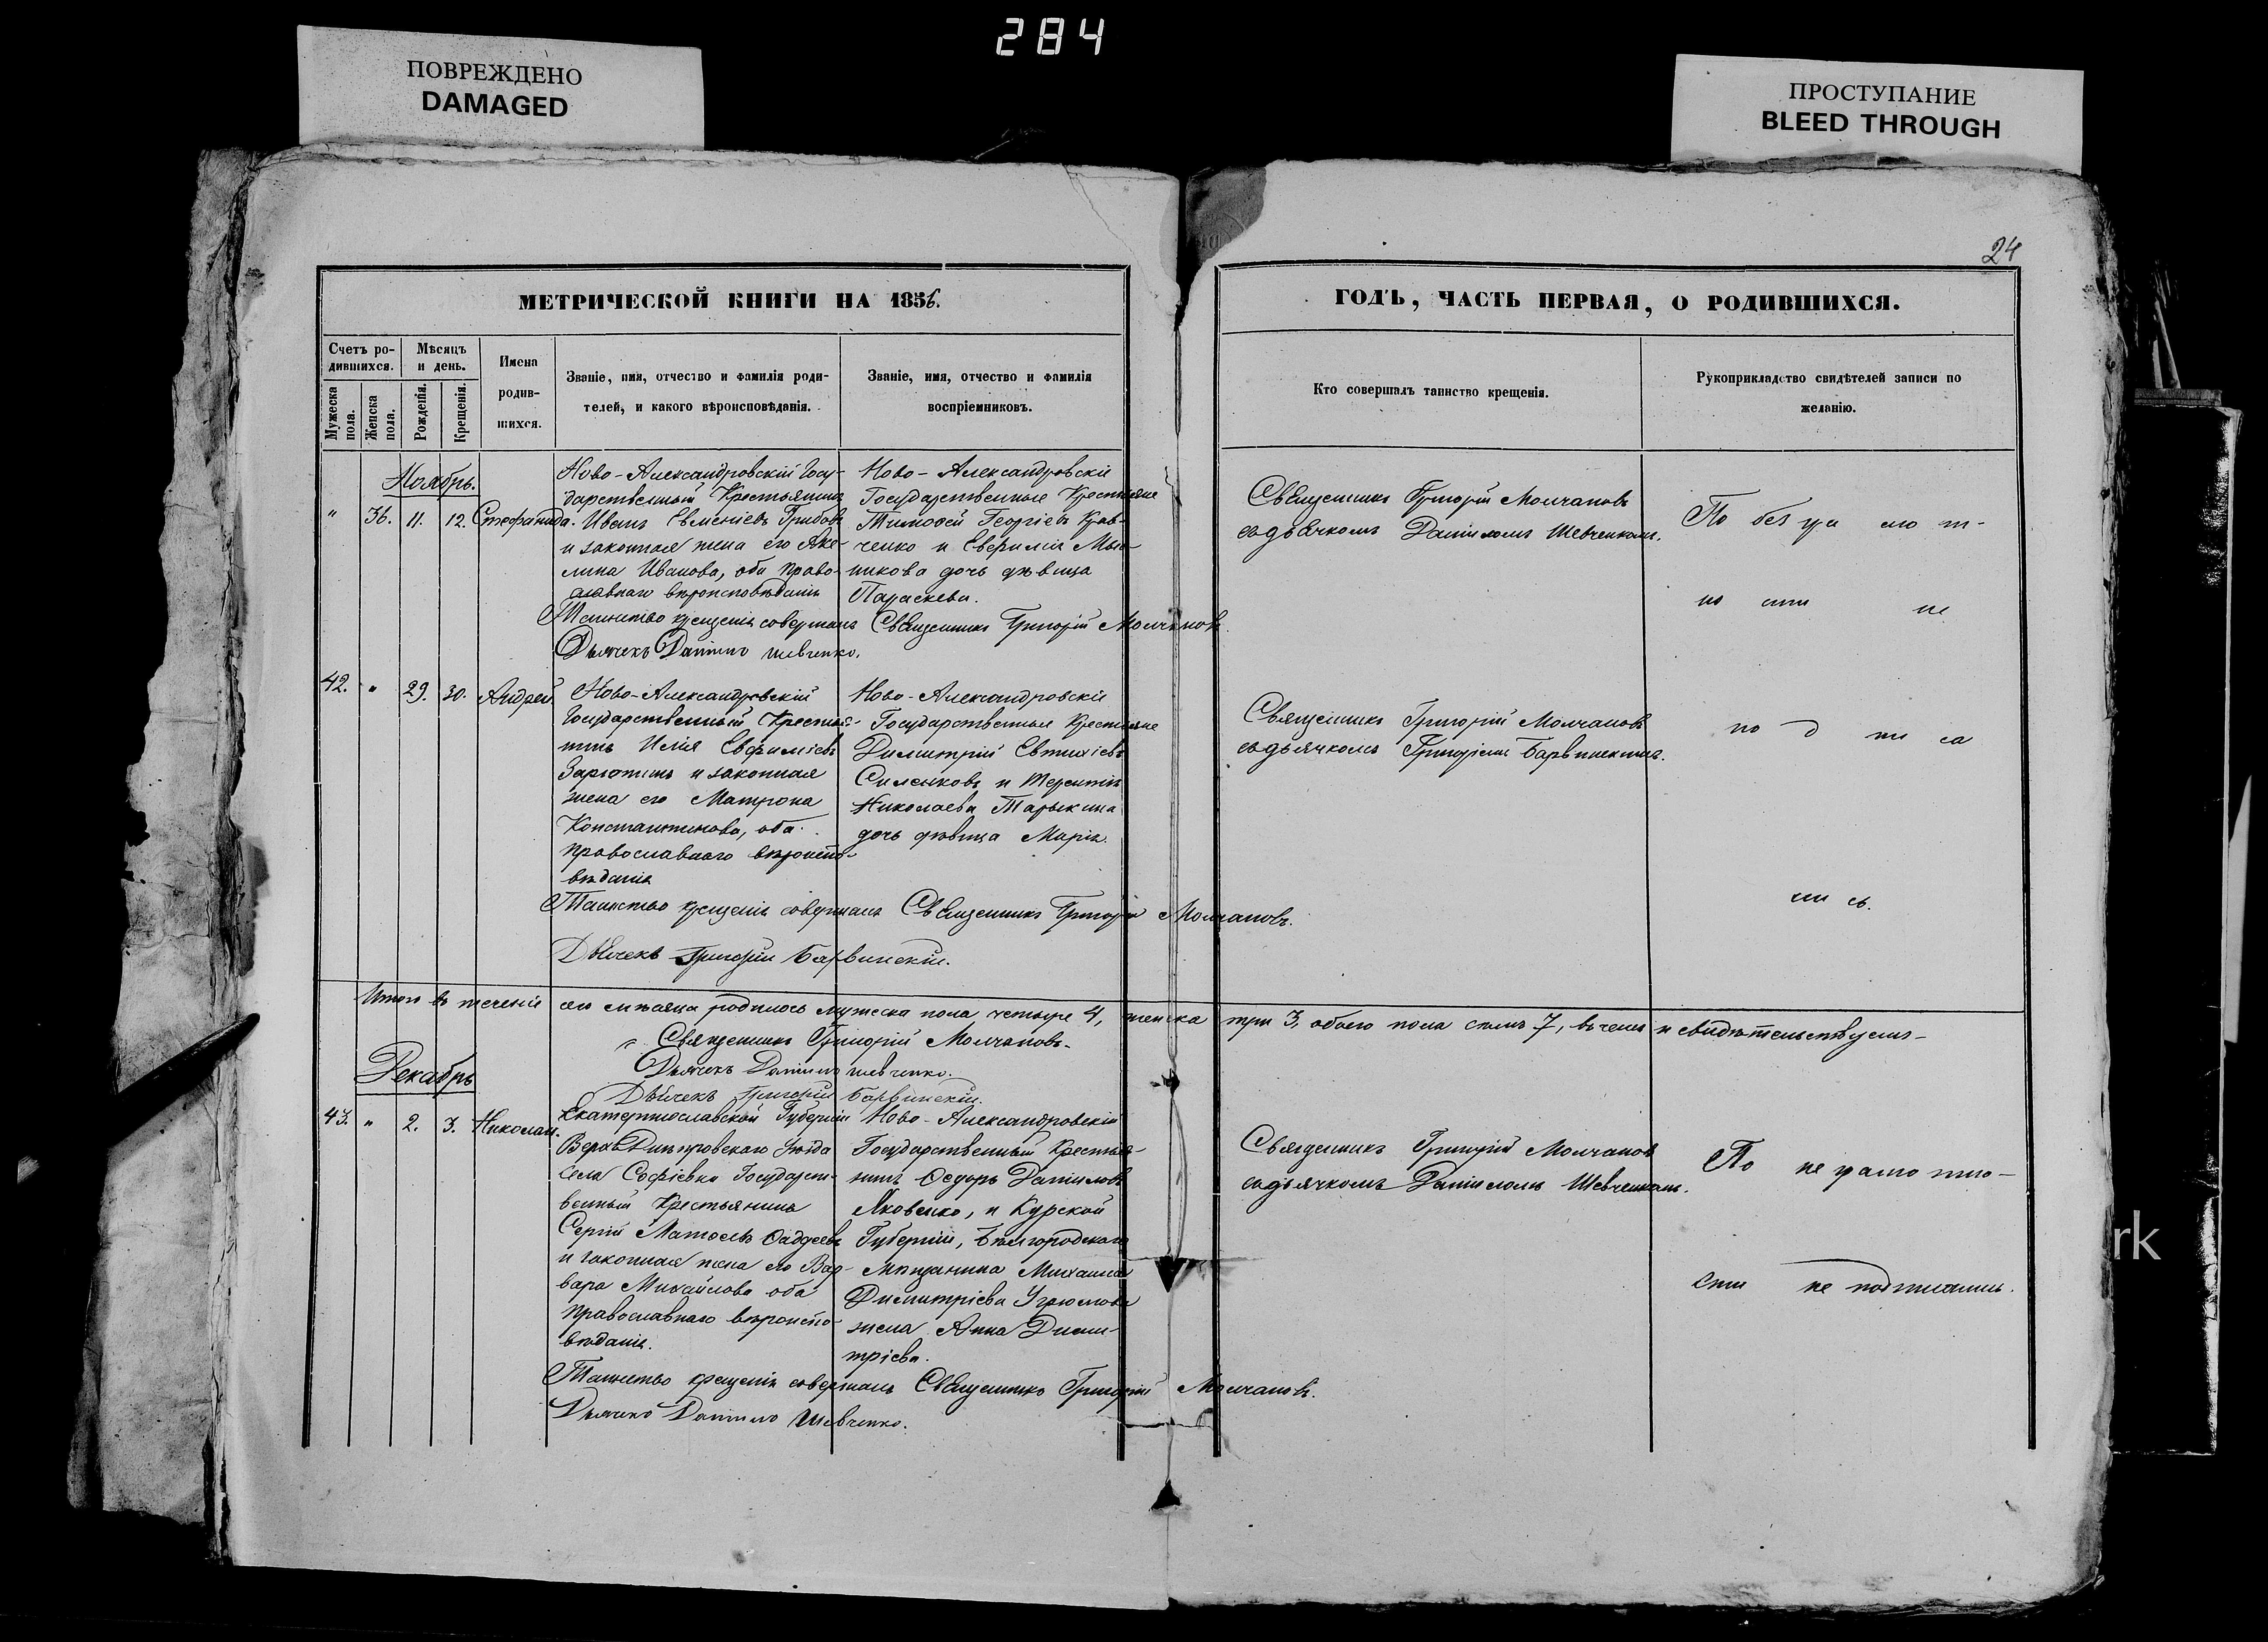 284
ПОВРЕЖДЕНО
DAMAGED
ПРОСТУПАНИЕ
BLEED THROUGH
24
МЕТРИЧЕСКОЙ КНИГИ НА 1856.
ГОДЪ, ЧАСТЬ ПЕРВАЯ, О РОДИВШИХСЯ.
Счетъ ро-
дившихся.
Мужеска
пола.
Женска
пола.
Мѣсяцъ
и день.
Рожденія.
Крещенія.
Имена
родив-
шихся.
Званіе, имя, отчество и фамилія роди-
телей, и какого вѣроисповѣданія.
Званіе, имя, отчество и фамилія
воспріемниковъ.
Кто совершалъ таинство крещенія.
Рукоприкладство свидѣтелей записи по
желанію.
Ноябрь.
" 36. 11. 12. Стефанида.
Ново-Александровскій Госу-
дарственный Крестьянинъ
Иванъ Евменіевъ Грибовъ
и законная жена его Аке-
лина Иванова, оба право-
славнаго вѣроисповѣданія
Ново-Александровскіе
Государственные Крестьяне
Тимофей Георгіевъ Крав-
ченко и
дочь дѣвица
Параскева.
Священникъ Григорій Молчановъ
съ дьячкомъ Даніиломъ Шевченкомъ.
По безграмот-
но сти не
Таинство крещенія совершалъ Священникъ Григорій Молчановъ.
Дьячекъ Даніилъ Шевченко.
42. " 29. 30. Андрей.
Ново-Александровскій
Государственный Крестья-
нинъ Илія Евфиміевъ
и законная
жена его Матрона
Константинова, оба
православнаго вѣроиспо-
вѣданія
Ново-Александровскіе
Государственные Крестьяне
Димитрій Евтихіевъ
Силенковъ и Терентія
Николаева Тарыкина
дочь дѣвица Марія.
Священникъ Григорій Молчановъ
съ дьячкомъ Григоріемъ Барвинскимъ.
по д пи са
ли сь.
Таинство крещенія совершалъ Священникъ Григорій Молчановъ.
Дьячекъ Григорій Барвинскій.
Итого въ теченіе сего мѣсяца родилось мужеска пола четыре 4, женска три 3, обоего пола семь 7, въ чемъ и свидѣтельствуемъ-
Священникъ Григорій Молчановъ.
Дьячекъ Даніилъ Шевченко.
Дьячекъ Григорій Барвинскій.
Декабрь
43. " 2. 3. Николай.
Екатеринославской Губерніи
Верхнеднѣпровскаго Уѣзда
Села Софіевки Государст-
венный Крестьянинъ
Сергій Матвѣевъ Фаддеевъ
и законная жена его Вар-
вара Михайлова оба
православнаго вѣроиспо-
вѣданія.
Ново-Александровскій
Государственный Крестья-
нинъ Ѳедоръ Даніиловъ
Яковенко, и Курской
Губерніи, Бѣлгородскаго
мѣщанина Михаила
Димитріева Угрюмова
жена Анна Дими-
тріева.
Священникъ Григорій Молчановъ
съ дьячкомъ Даніиломъ Шевченкомъ.
По не грамотно-
сти не подписались.
Таинство крещенія совершалъ Священникъ Григорій Молчановъ.
Дьячекъ Даніилъ Шевченко.
rk